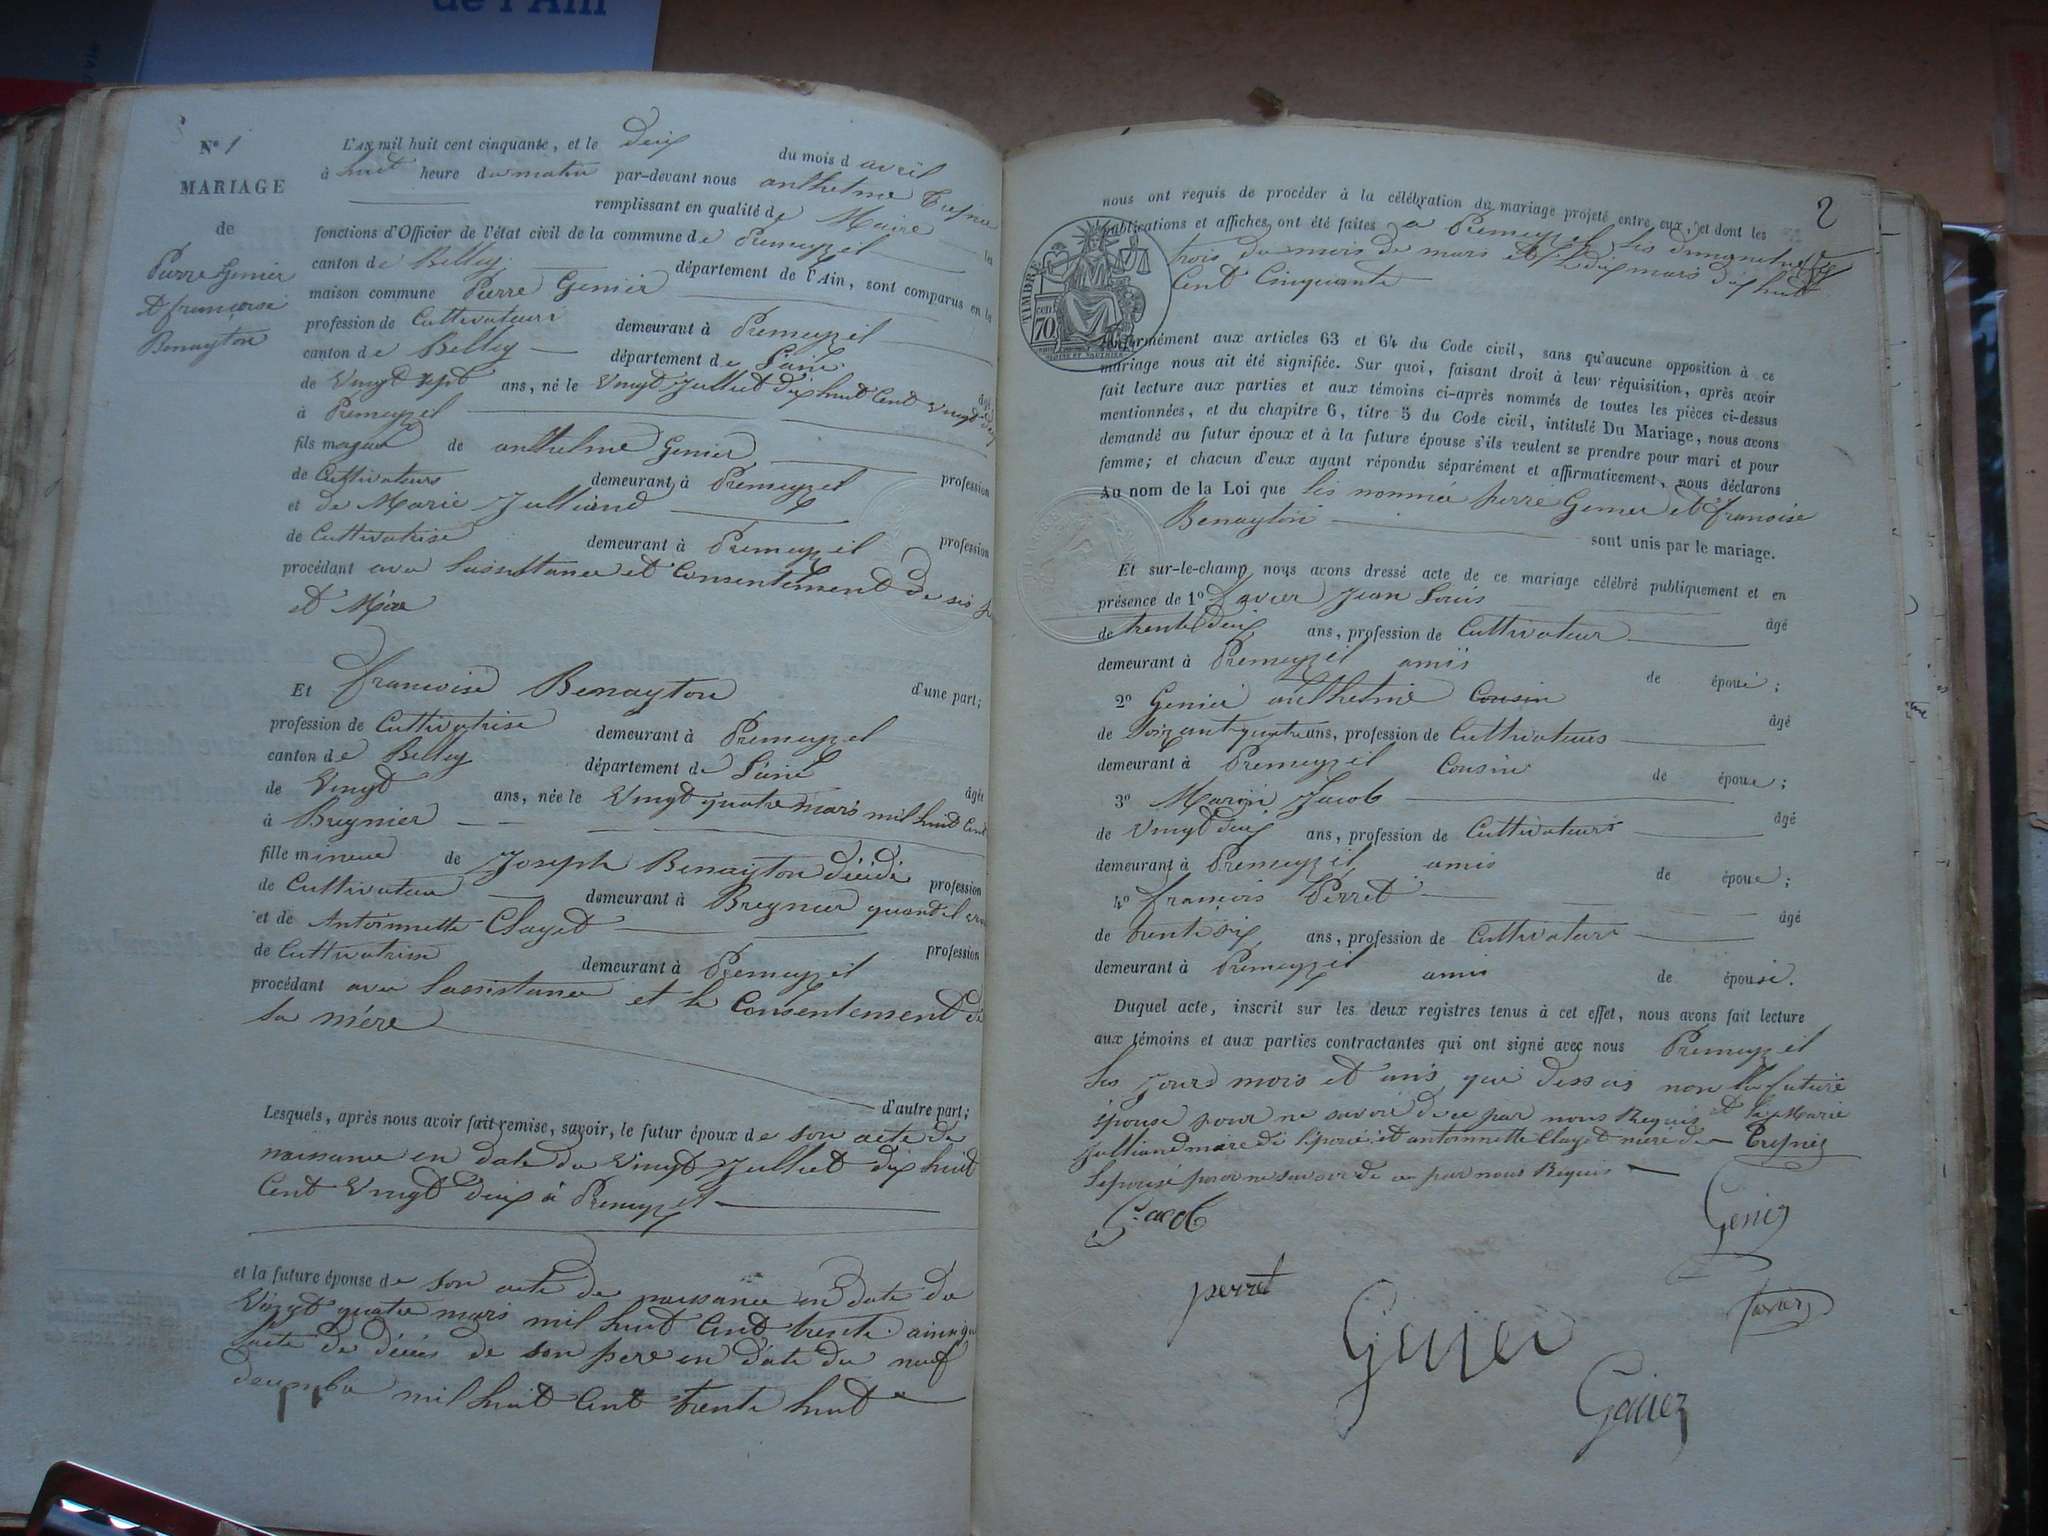 de l'Ain
N° 1
MARIAGE
de
Pierre Genier
et francoise
Benayton
L'AN mil huit cent cinquante, et le deux du mois d avril
à huit heure du matin par-devant nous anthelme Trefnier
remplissant en qualité de Maire les
fonctions d'Officier de l'état civil de la commune de Premeyzel
canton de Belley département de l'Ain, sont comparus en la
maison commune Pierre Genier
profession de Cultivateur demeurant à Premeyzel
canton de Belley département de L'ain âgé
de Vingt sept ans, né le Vingt Julliet dix huit Cent vingt deux
à Premeyzel
fils mageur de anthelme Genier profession
de Cultivateurs demeurant à Premeyzel
et de Marie Julliand profession
de Cultivatrise demeurant à Premeyzel
procédant avec Lassistance et Consentement de ses
et Mère
d'une part;
Et francoise Benayton
profession de Cultivatrise demeurant à Premeyzel
canton de Belley département de L'ain âgée
de Vingt ans, née le Vingt quatre mars mil huit Cent
à Bregnier
fille mineure de Joseph Benayton décédé profession
de Cultivateur demeurant à Bregnier quand il
et de Antoinnette Clayet profession
de Cultivatrise demeurant à Premeyzel
procédant avec Lassistance et le Consentement de
Sa mére
d'autre part;
Lesquels, après nous avoir fait remise, savoir, le futur époux de son acte de
naissance en date du Vingt Julliet dix huit
Cent Vingt deux à Premeyzel
et la future épouse de son acte de naissance en Date du
Vingt quatre mars mil huit Cent trente ainsi que
Lacte de décés de son pere en date du neuf
decembre mil huit Cent trente huit
2
nous ont requis de procéder à la célébration du mariage projeté entre eux, et dont les
publications et affiches ont été faites a Premeyzel Les dimanches
trois du mois de mars et dix mars dix huit
Cent Cinquante
TIMBRE
70 cent
Conformément aux articles 63 et 64 du Code civil, sans qu'aucune opposition à ce
mariage nous ait été signifiée. Sur quoi, faisant droit à leur réquisition, après avoir
fait lecture aux parties et aux témoins ci-après nommés de toutes les pièces ci-dessus
mentionnées, et du chapitre 6, titre 5 du Code civil, intitulé Du Mariage, nous avons
demandé au futur époux et à la future épouse s'ils veulent se prendre pour mari et pour
femme; et chacun d'eux ayant répondu séparément et affirmativement, nous déclarons
Au nom de la Loi que Les nommés pierre Genier et francoise
Benayton
sont unis par le mariage.
Et sur-le-champ nous avons dressé acte de ce mariage célébré publiquement et en
présence de 1° Jean Louis âgé
de trente deux ans, profession de Cultivateur
demeurant à Premeyzel amis de époux;
2° Genier anthelme Cousin âgé
de Soixante quatre ans, profession de Cultivateurs
demeurant à Premeyzel Cousin de époux;
3° Marin Jacob âgé
de Vingt deux ans, profession de Cultivateurs
demeurant à Premeyzel amis de époux;
4° francois Perret âgé
de trente six ans, profession de Cultivateurs
demeurant à Premeyzel amis de épouse.
Duquel acte, inscrit sur les deux registres tenus à cet effet, nous avons fait lecture
aux témoins et aux parties contractantes qui ont signé avec nous Premeyzel
Les jours mois et ans que dessus non La future
épouse pour ne savoir de ce par nous Requis et La Marie
Julliand mere de L'epoux et antoinnette Clayet mère de
Lepouse pour ne savoir de ce par nous Requis
Jacob
Genier
perret
Genier
Genier